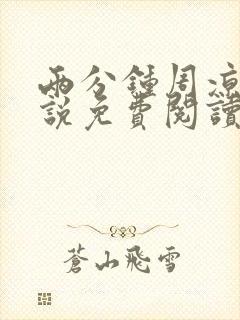 兩分鐘周凉
說免費閱讀
蒼山飛雪